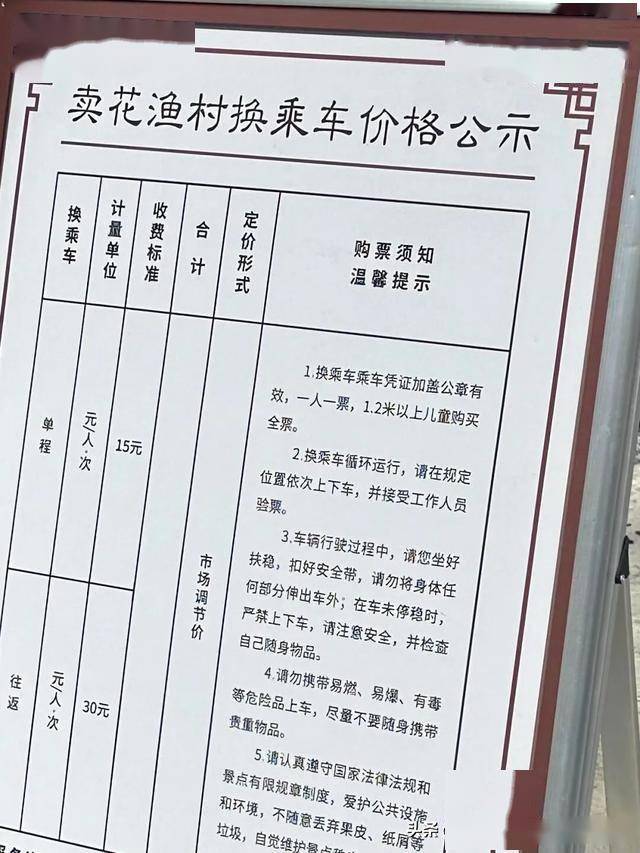 卖花渔村换乘车价格公示
换乘车
计量单位
收费标准
合计
定价形式
购票须知
温馨提示
单程
元/人·次
15元
往返
元/人·次
30元
市场调节价
1.换乘车乘车凭证加盖公章有
效，一人一票，1.2米以上儿童购买
全票。
2.换乘车循环运行，请在规定
位置依次上下车，并接受工作人员
验票。
3.车辆行驶过程中，请您坐好
扶稳，扣好安全带，请勿将身体任
何部分伸出车外；在车未停稳时，
严禁上下车，请注意安全，并检查
自己随身物品。
4.请勿携带易燃、易爆、有毒
等危险品上车，尽量不要随身携带
贵重物品。
5.请认真遵守国家法律法规和
景点有限规章制度，爱护公共设施
和环境，不随意丢弃果皮、纸屑等
垃圾，自觉维护景点